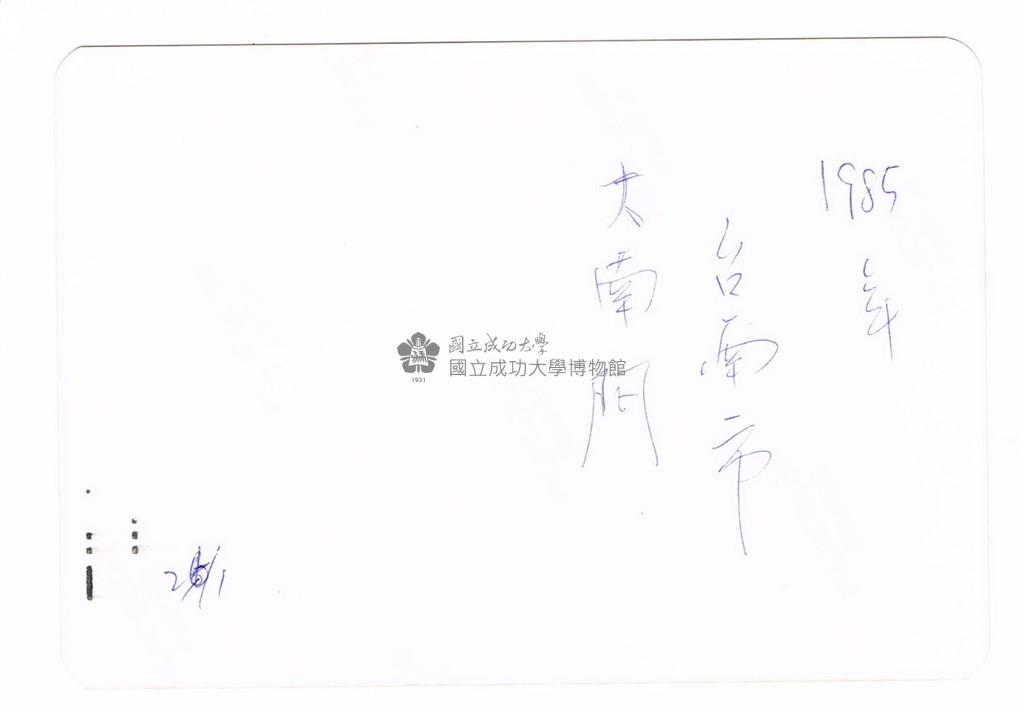 1985年
台南市
大南門
國立成功大學
國立成功大學博物館
1931